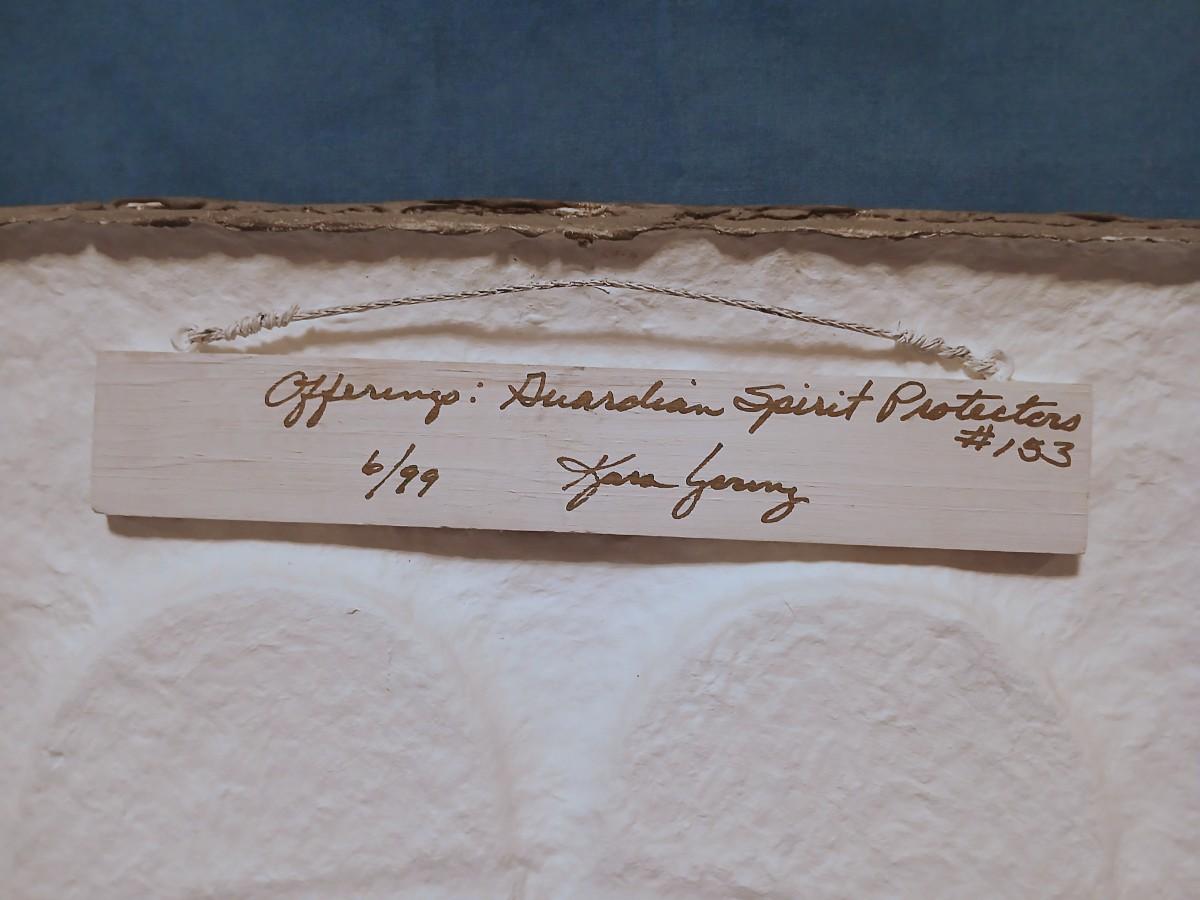 Offerings: Guardian Spirit Protectors
#153
6/99 Kara Young